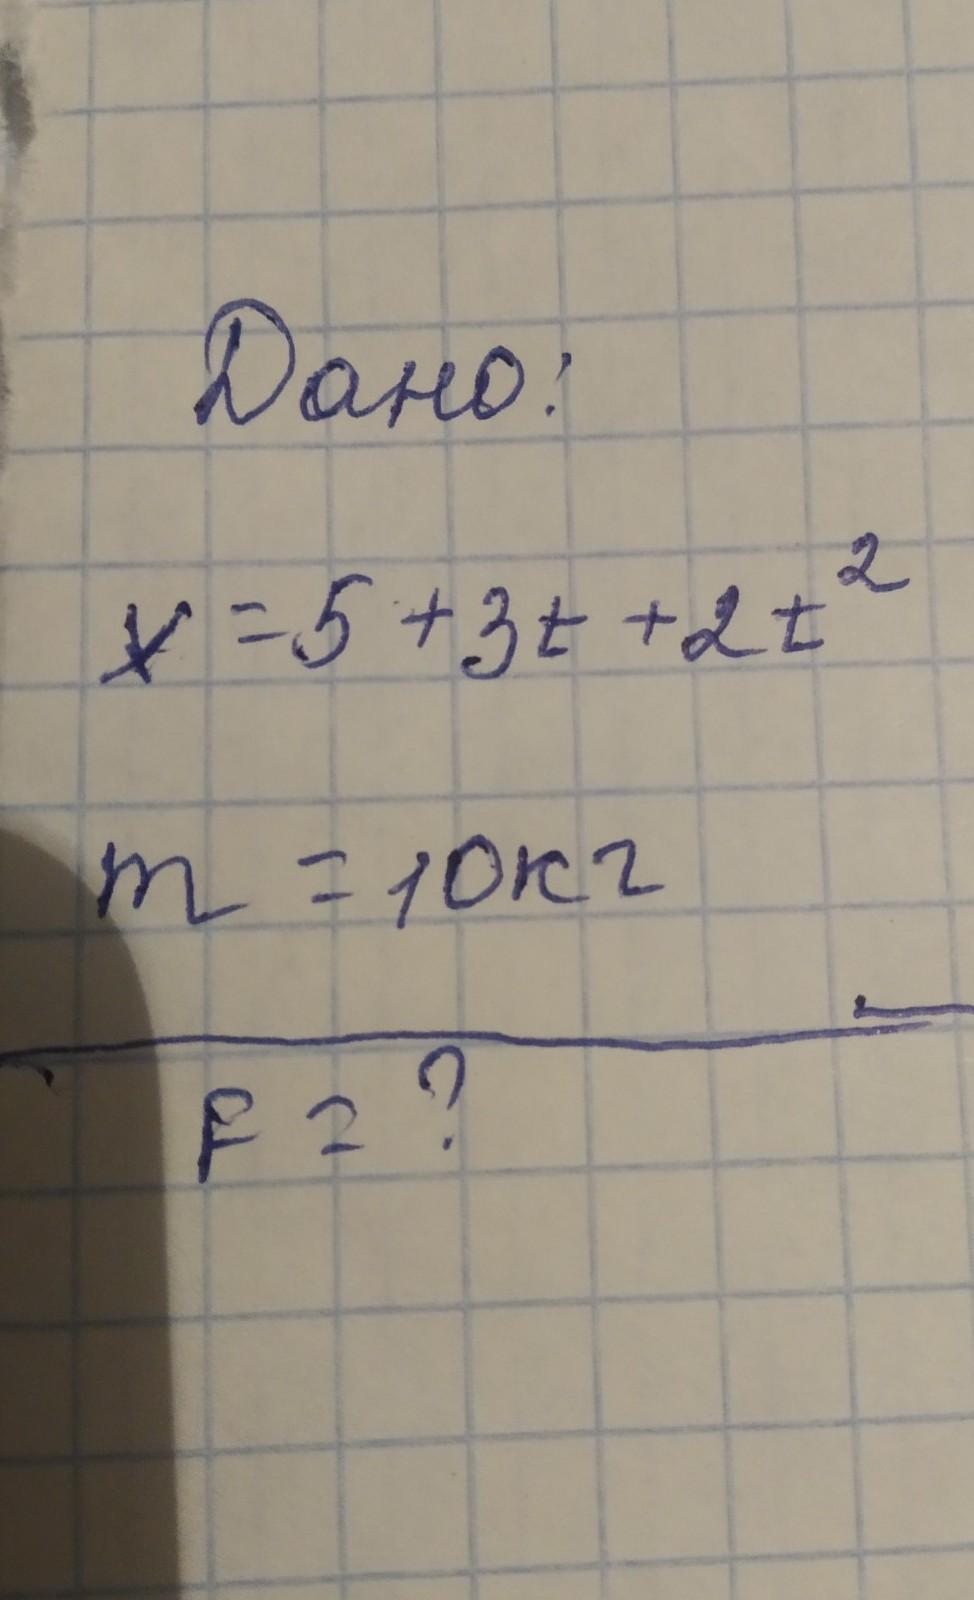 Дано:
x = 5 + 3t + 2t²
m = 10кг
F = ?